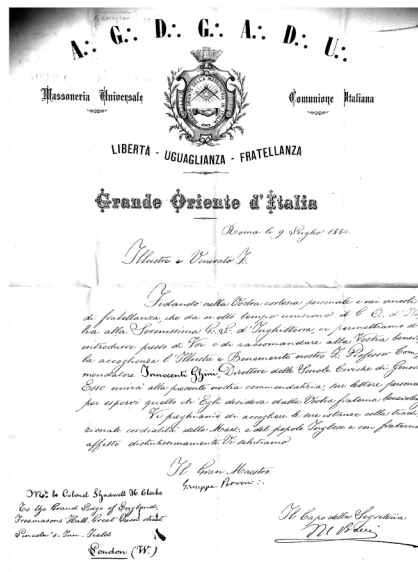 A∴ G∴ D∴ G∴ A∴ D∴ U∴
Massoneria Universale
Comunione Italiana
LIBERTÀ - UGUAGLIANZA - FRATELLANZA
Grande Oriente d'Italia
Roma li 9 Luglio 188
Illustre e Venerato F.
Fidando nella Vostra cortesia personale e nei vincoli
di fratellanza, che da molto tempo uniscono il G. O. d'Ita
lia alla Serenissima G. L. d'Inghilterra, ci permettiamo d'
introdurre presso di Voi e di raccomandare alla Vostra benevo
la accoglienza l'Illustre e Benemerito nostro F. Professor Com
mendatore Innocenti Ghini Direttore delle Scuole Civiche di Genova
Esso unirà alla presente nostra commendatizia, sue lettere persona
per esporvi quello ch'Egli desidera dalla Vostra fraterna benevolenz
Vi preghiamo di accogliere le sue istanze colla tradi
zionale cordialità della Mass. e del popolo Inglese e con fraterno
affetto distintissimamente Vi salutiamo.
Il Gran Maestro
Giuseppe
Il Capo della Segreteria
to Colonel Shadwell H. Clerke
To the Grand Lodge of England,
Freemasons' Hall, Great Queen street
Lincoln's Inn-Fields
London (W.)